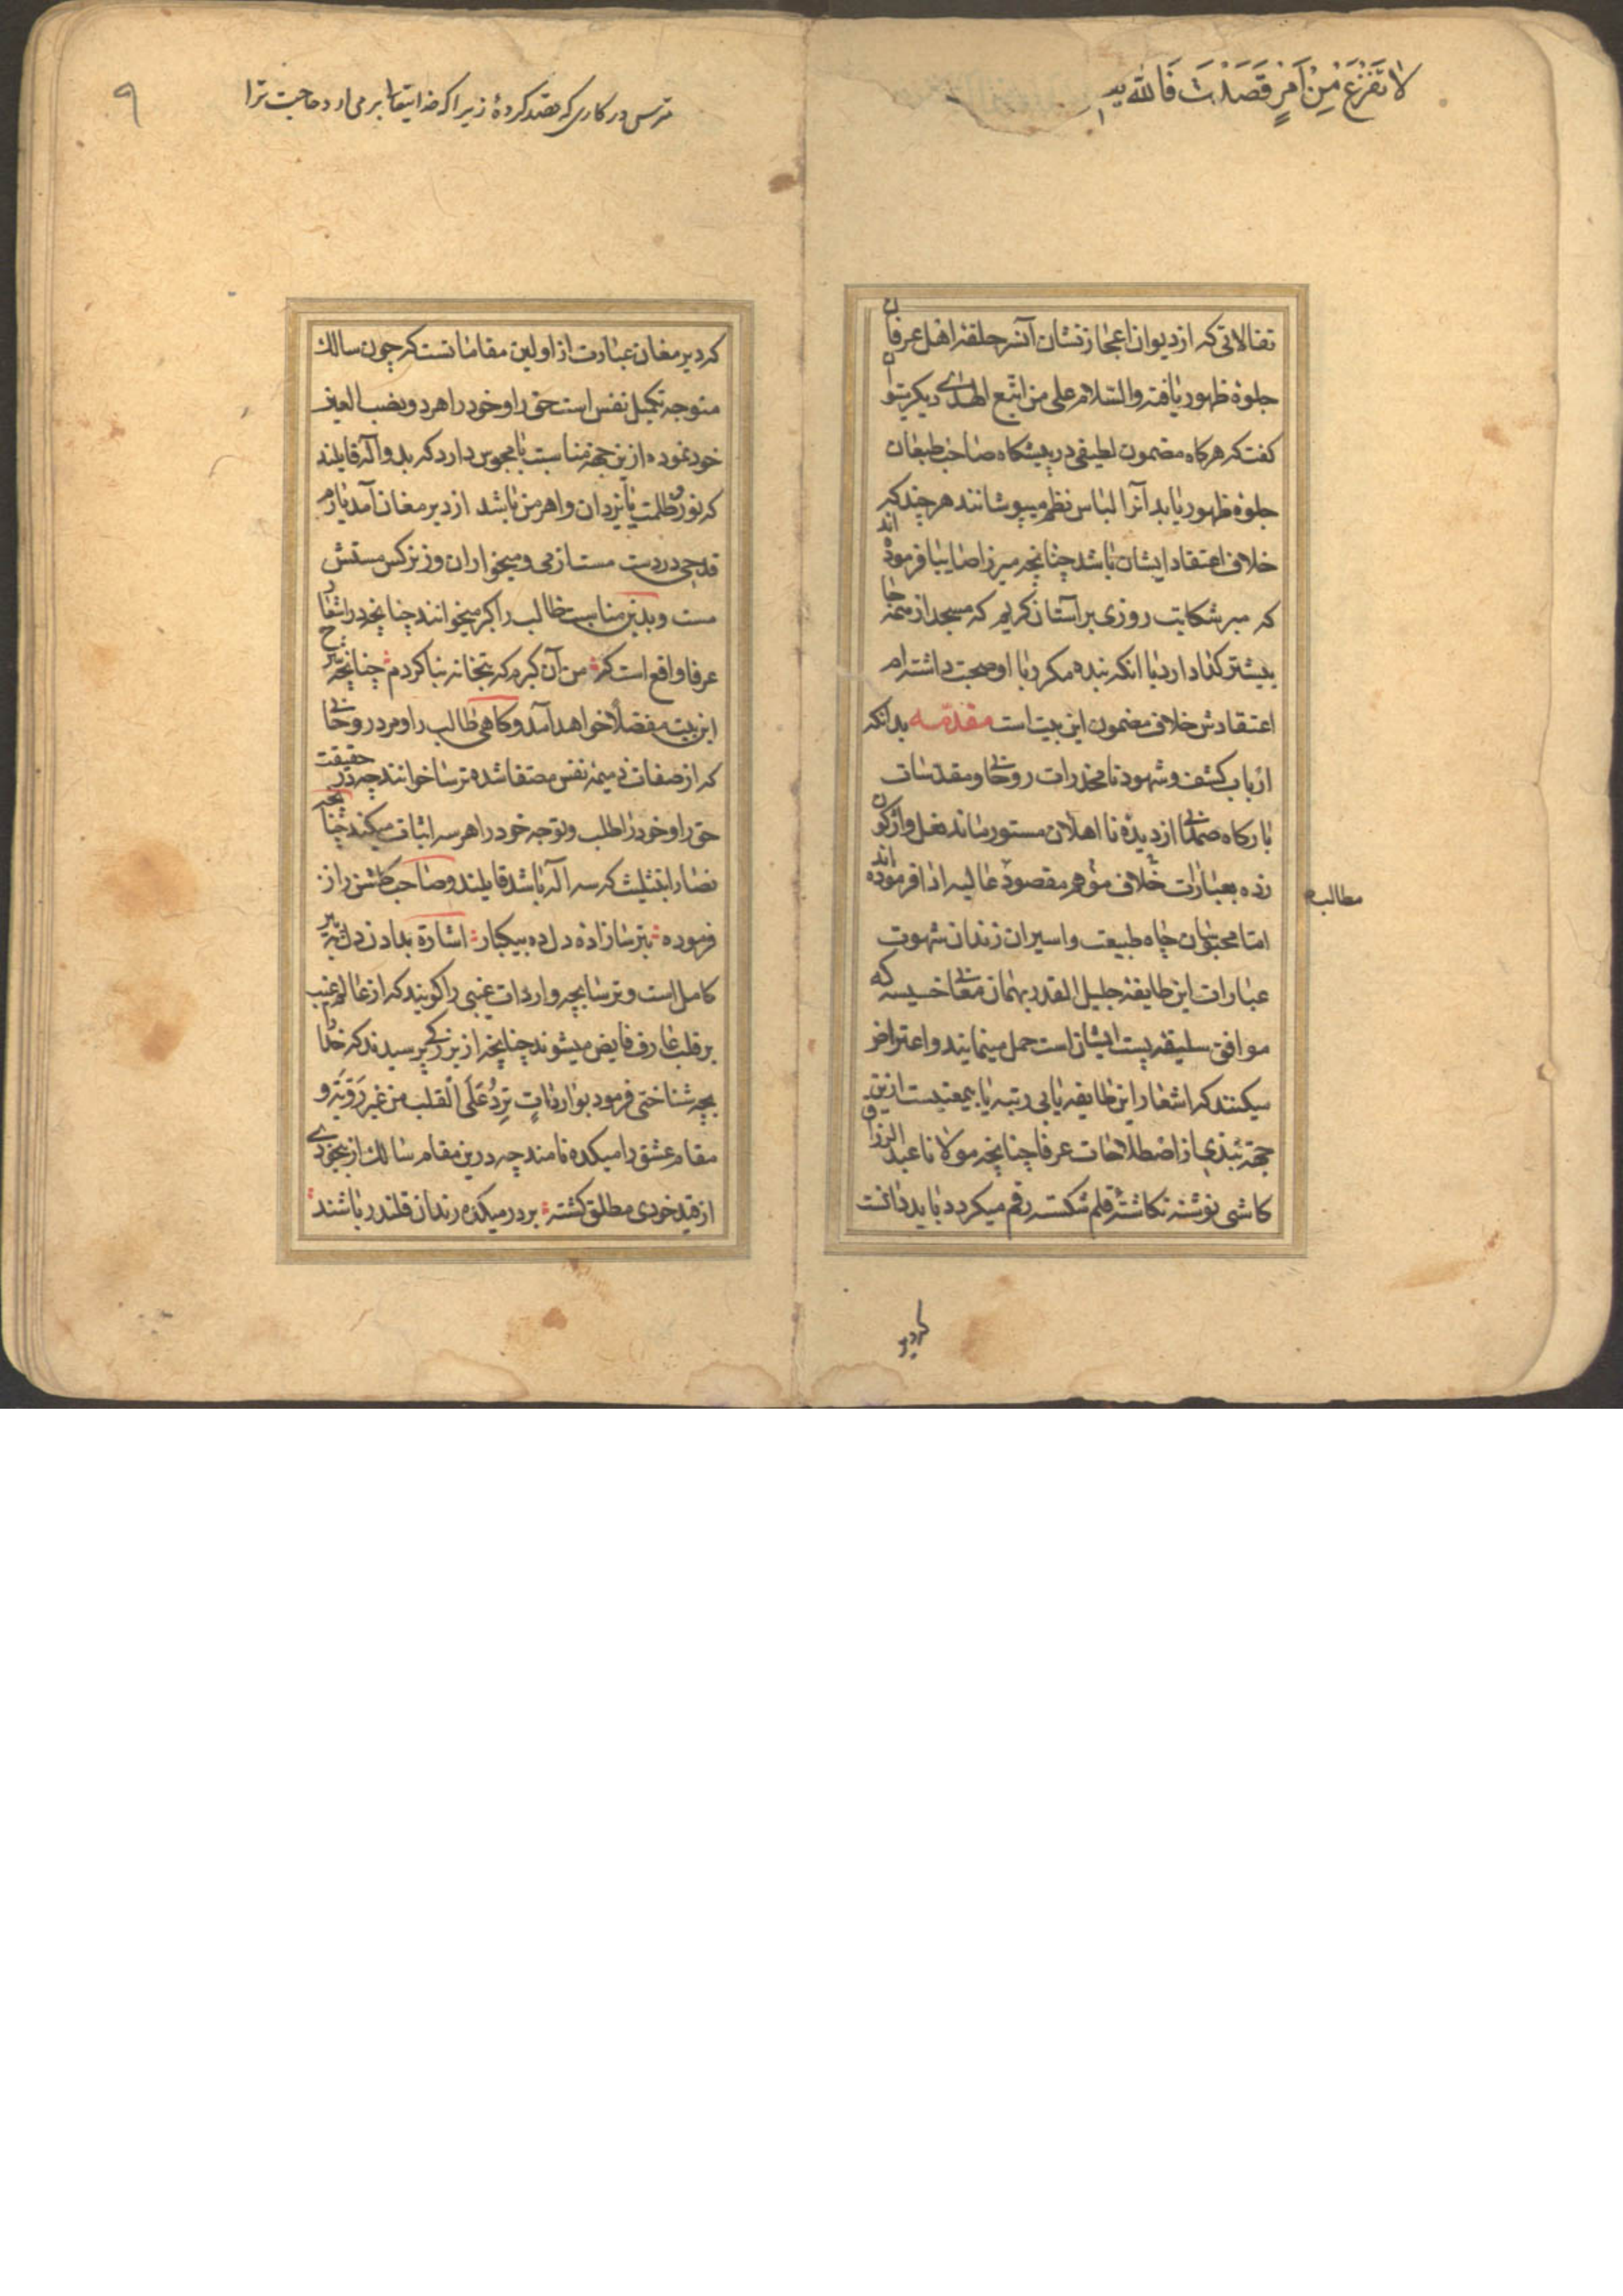 لا تَفْزَعْ مِنْ اَمْرٍ قَصَدْتَ فَاللّه
تفالاتی که از دیوان اعجاز نشان آنسر حلقهٔ اهل عرفان
جلوهٔ ظهور یافته والسّلام علی من اتّبع الهدی دیکر بتوان
کفت که هرکاه مضمون لطیفی در پیشکاه صاحب طبعان
جلوهٔ ظهور یابد آنرا لباس نظم میپوشانند هرچند که
خلاف اعتقاد ایشان باشد چنانچه میرزا صایبا فرموده اند
که میر شکایت روزی بر آستان کریم که مسجد از میخانها
بیشتر کدا دارد با انکه بنده مکرر با او صحبت داشته ام
اعتقادش خلاف مضمون این بیت است مقدّمه بدانکه
ارباب کشف و شهود تا مخدرات روحانی و مقدّسات
بارکاه صمدانی از دیدهٔ نا اهلان مستور ماند نعل واژکون
زده بعبارات خلاف موهم مقصود عالیه ادا فرموده اند
مطالب
امّا محبوسان چاه طبیعت و اسیران زندان شهوت
عبارات این طایفهٔ جلیل القدر بهمان معانی خسیسه که
موافق سلیقه پست ایشان است حمل مینمایند و اعتراض
میکنند که اشعار این طایفه یا بی رتبه یا بیمعنیست ازین
جهة نبذی از اصطلاحات عرفا چنانچه مولانا عبد الرزاق
کاشی نوشته نکاشتهٔ قلم شکسته رقم میکردد باید دانست
که دیر
مترس در کاری که قصد کردهٔ زیرا که خدایتعالی بر می ارد حاجت ترا
۹
که دیر مغان عبارت از اولین مقاماتست که چون سالک
متوجه تکمیل نفس است حق را و خود را هر دو نصب العین
خود نموده ازین جهة مناسبت با مجوس دارد که بدو آله قایلند
که نور و ظلمت یا یزدان و اهرمن باشد از دیر مغان آمد یارم
قدحی در دست مست از می و میخواران وز نرکس مستش
مست و بدین مناسبت طالب را کبر میخوانند چنانچه در اشعار
عرفا واقع است که من آن کبرم که بتخانه بنا کردم چنانچه شرح
این بیت مفصّلا خواهد آمد و کاهی طالب را و مرد روحانی
که از صفات ذمیمه نفس مصفا شده ترسا خوانند چه در حقیقت
حق را و خود را و طلب و توجه خود را هر سه اثبات میکند چنانچه
نصارا بتثلیث که سه اله باشد قایلند و صاحب کلشن راز
فرموده بترسازاده دل ده بیکبار اشارة بدادن دل به پیر
کامل است و ترسابچه واردات غیبی را کویند که از عالم غیب
بر قلب عارف فایض میشوند چنانچه از بزرکی پرسیدند که خدا را
بچه شناختی فرمود بوارداتٍ تردُ عَلَی القلب من غیر رَوِیَة و
مقام عشق را میکده نامند چه درین مقام سالک از بیخودی
از قید خودی مطلق کشته بر در میکده رندان قلندر باشند